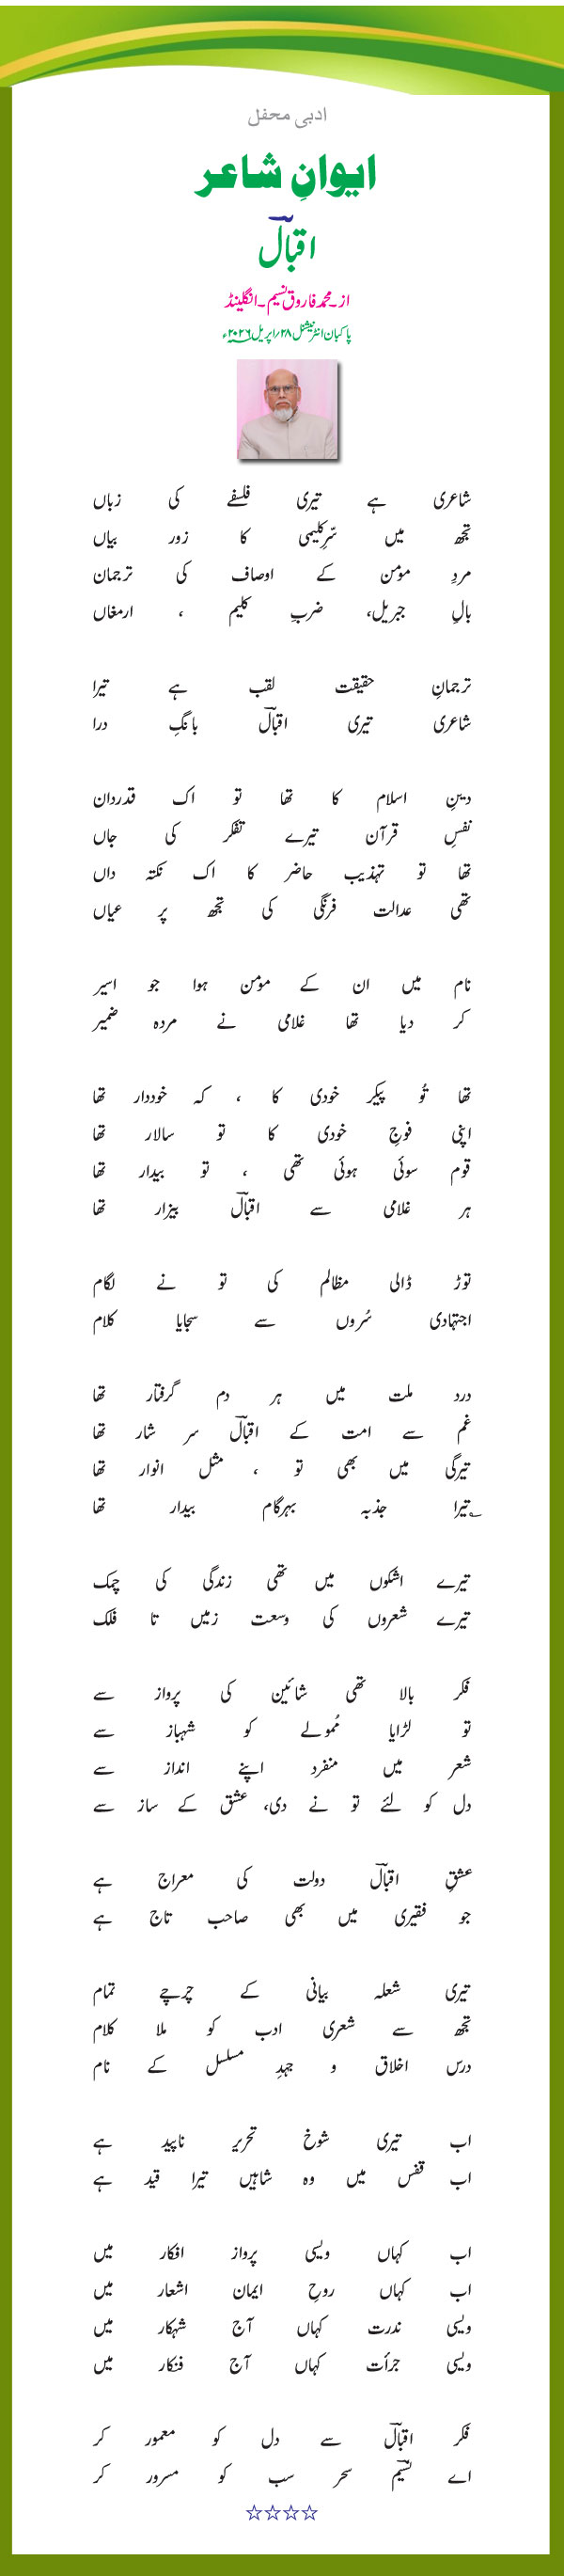 ادبی محفل
ایوانِ شاعر
اقبالؔ
از۔ محمد فاروق نسیم۔ انگلینڈ
پاکبان انٹرنیشنل ۲۸/اپریل ۲۰۲۶ء
شاعری ہے تیری فلسفے کی زباں
تجھ میں سّرِ کلیمی کا زور بیاں
مردِ مومن کے اوصاف کی ترجمان
بالِ جبریل، ضربِ کلیم ، ارمغاں
ترجمانِ حقیقت لقب ہے تیرا
شاعری تیری اقبالؔ بانگِ درا
دینِ اسلام کا تھا تو اک قدردان
نفسِ قرآن تیرے تفکر کی جاں
تھا تو تہذیب حاضر کا اک نکتہ داں
تھی عدالت فرنگی کی تجھ پر عیاں
نام میں ان کے مومن ہوا جو اسیر
کر دیا تھا غلامی نے مردہ ضمیر
تھا تُو پیکر خودی کا ، کہ خوددار تھا
اپنی فوجِ خودی کا تو سالار تھا
قوم سوئی ہوئی تھی ، تو بیدار تھا
ہر غلامی سے اقبالؔ بیزار تھا
توڑ ڈالی مظالم کی تو نے لگام
اجتہادی سُروں سے سجایا کلام
درد ملت میں ہر دم گرفتار تھا
غم سے امت کے اقبالؔ سر شار تھا
تیرگی میں بھی تو ، مثل انوار تھا
تیرا جذبہ بہرگام بیدار تھا
تیرے اشکوں میں تھی زندگی کی چمک
تیرے شعروں کی وسعت زمیں تا فلک
فکر بالا تھی شائین کی پرواز سے
تو لڑایا ممُولے کو شہباز سے
شعر میں منفرد اپنے انداز سے
دل کو لئے تو نے دی، عشق کے ساز سے
عشقِ اقبالؔ دولت کی معراج ہے
جو فقیری میں بھی صاحب تاج ہے
تیری شعلہ بیانی کے چرچے تمام
تجھ سے شعری ادب کو ملا کلام
درس اخلاق و جہدِ مسلسل کے نام
اب تیری شوخ تحریر ناپید ہے
اب قفس میں وہ شاہیں تیرا قید ہے
اب کہاں ویسی پرواز افکار میں
اب کہاں روحِ ایمان اشعار میں
ویسی ندرت کہاں آج شہکار میں
ویسی جرأت کہاں آج فنکار میں
فکر اقبالؔ سے دل کو معمور کر
اے نسیمؔ سحر سب کو مسرور کر
☆☆☆☆